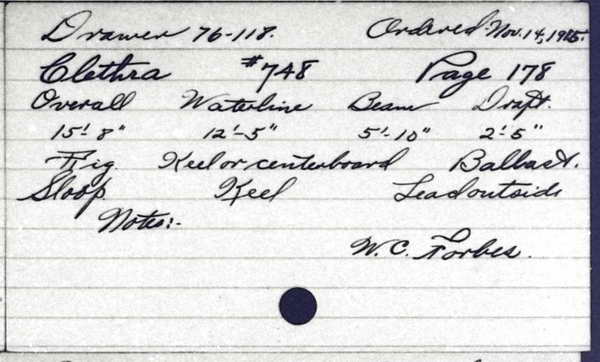 Drawer 76-118. Ordered Nov. 14, 1915.
Clethra #748 Page 178
Overall Waterline Beam Draft.
15'-8" 12'-5" 5'-10" 2'-5"
Rig Keel or centerboard Ballast.
Sloop Keel Lead outside
Notes:-
W. C. Forbes.